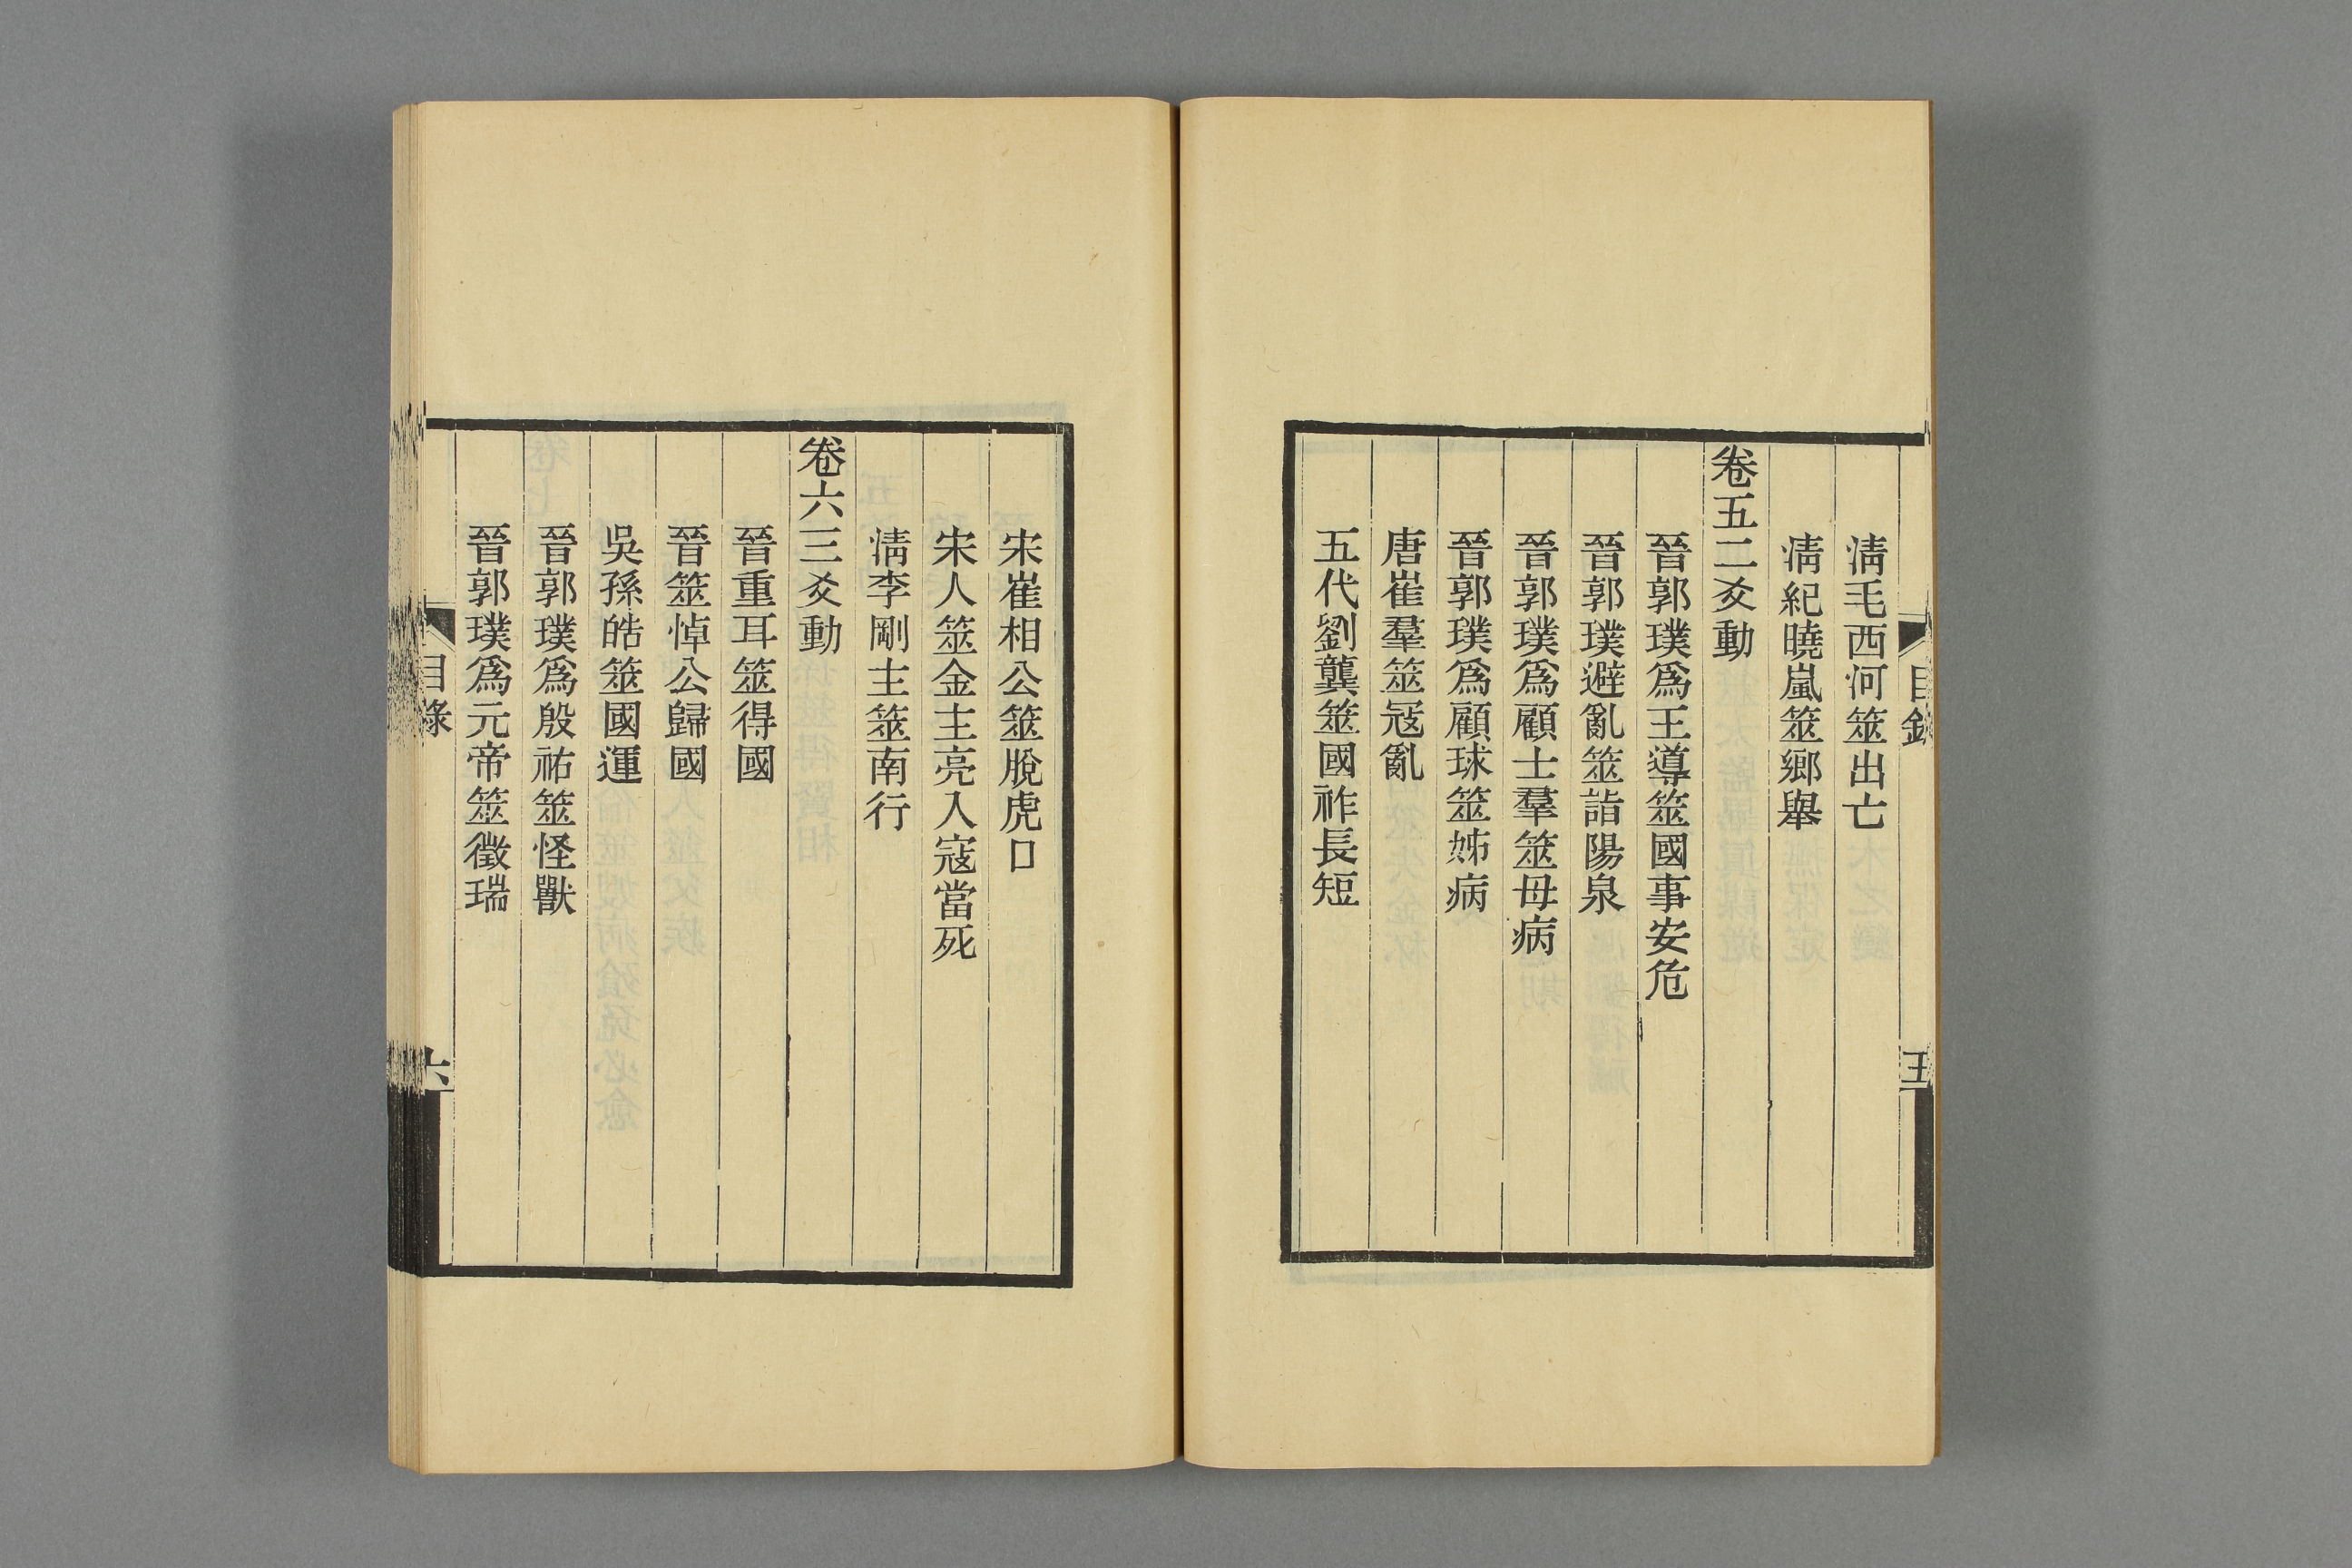 目錄
五
清毛西河筮出亡
清紀曉嵐筮鄉舉
卷五二爻動
晉郭璞爲王導筮國事安危
晉郭璞避亂筮詣陽泉
晉郭璞爲顧士羣筮母病
晉郭璞爲顧球筮姊病
唐崔羣筮寇亂
五代劉龑筮國祚長短
宋崔相公筮脫虎口
宋人筮金主亮入寇當死
清李剛主筮南行
卷六三爻動
晉重耳筮得國
晉筮悼公歸國
吳孫皓筮國運
晉郭璞爲殷祐筮怪獸
晉郭璞爲元帝筮徵瑞
目錄
六